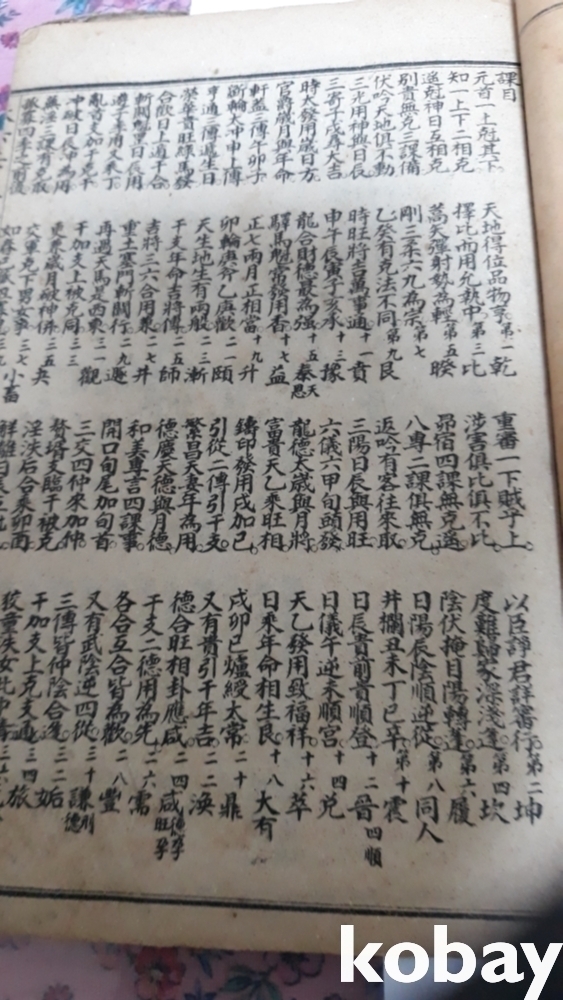 課目
元首一上尅其下 天地得位品物亨第一乾 重審一下賊子上 以臣諍君詳審行第二坤
知一上下二相克 擇比而用允執中第三比 涉害俱比俱不比 度難歸家深淺逢第四坎
遙尅神日互相克 蒿矢彈射勢為輕第五睽 昴宿四課無克遙 陰伏掩目陽轉蓬第六履
別責無克三課備 剛三柔六九為宗第七 八專二課俱無克 日陽辰陰順逆從第八同人
伏吟天地俱不動 乙癸有克法不同第九艮 返吟有客往來取 井欄丑未丁己辛第十震
三光用神與日辰 時旺將吉萬事通十一賁 三陽日辰與用旺 日辰貴前貴順登十二晉四順
三寄子戌辱大吉 申午辰寅子亥承十三豫 六儀六甲旬頭發 日儀午逆未順宮十四兌
時太發用歲日方 龍合財德最為強十五泰天恩 龍德太歲與月將 天乙發用致福祥十六萃
官爵歲月與年命 驛馬魁常發用香十七益 富貴天乙乘旺相 日乘年命相生良十八大有
軒蓋三傳午卯子 正七兩月正相當十九升 鑄印發用戌加巳 戌卯巳爐綬太常二十鼎
斵輪太冲申上傳 卯輪庚斧乙庚歡二一頤 引從二傳引干支 又有貴引干年吉二二渙
亨通三傳遞生日 天生地生有兩般二三漸 繁昌夫妻年為用 德合旺相卦應咸二四咸德孕旺孕
榮華貴旺祿馬發 干支年命吉將傳二五師 德慶天德與月德 干支二德用為先二六需
合歡日上遁干合 吉將三六合用象二七井 和美專言四課事 各合互合皆為歡二八豐
斬關魁罡日辰用 重土塞門斬關行二九遯 開口旬尾加旬首 又有武陰逆四從三十謙刖德
遊子未用又未丁 再遇天馬是西東三一觀 三交四仲來加仲 三傳皆仲陰合逢三二姤
亂首支加干克干 干加支上被克同三三 贅壻支臨干被克 干加支上克支通三四旅
冲破日辰冲為用 更乘歲月破神併三五夬 淫泆后合乘卯酉 狡童佚女此中尋三六
蕪淫三課有克取 交車克下男女爭三七小畜 解離日辰
kobay